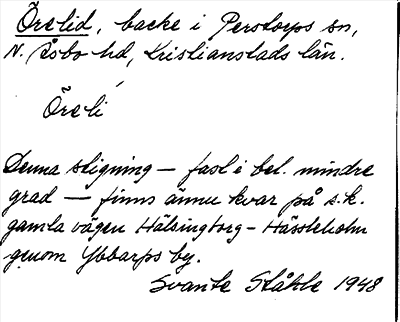 Örelid, backe i Perstorps sn,
N. Åsbo hd, Kristianstads län.
Öreli´
Denna stigning — fast i bet. mindre
grad — finns ännu kvar på s.k.
gamla vägen Hälsingborg - Hässleholm
genom Ybbarps by.
Svante Ståhle 1948